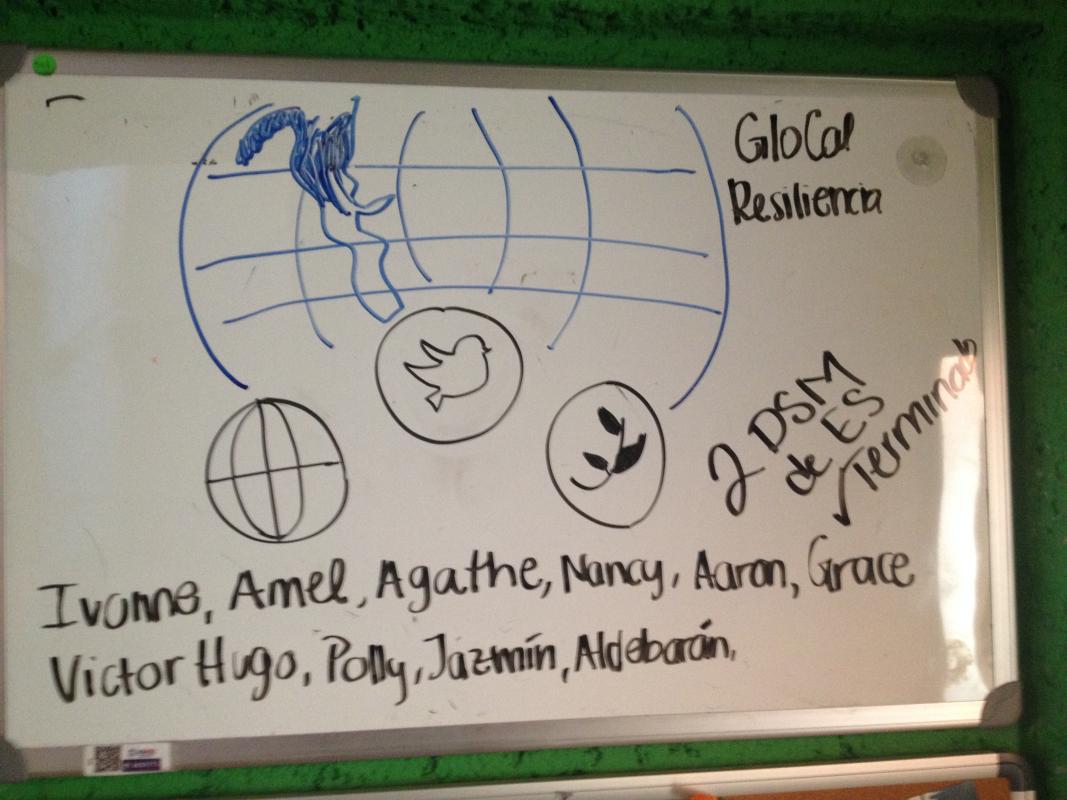 GloCal
Resiliencia
2 DSM
de ES
√Terminado
Ivonne, Amel, Agathe, Nancy, Aaron, Grace
Victor Hugo, Polly, Jazmín, Aldebarán,